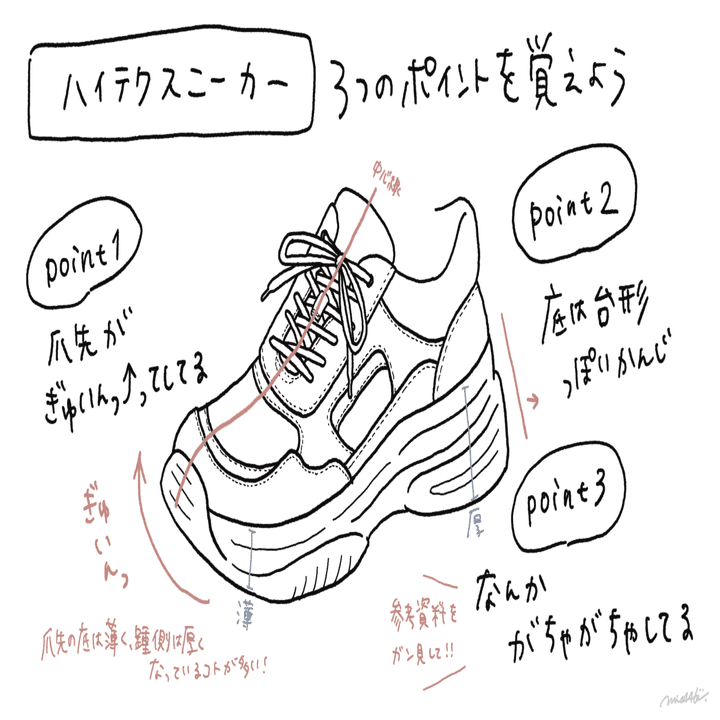 ハイテクスニーカー 3つのポイントを覚えよう
中心線
point1
爪先が
ぎゅいんっ↑ってしてる
point2
底は台形
っぽいかんじ
ぎゅ
い
んっ
薄
厚
爪先の底は薄く、踵側は厚く
なっているコトが多い!
point3
なんか
がちゃがちゃしてる
参考資料を
ガン見して!!